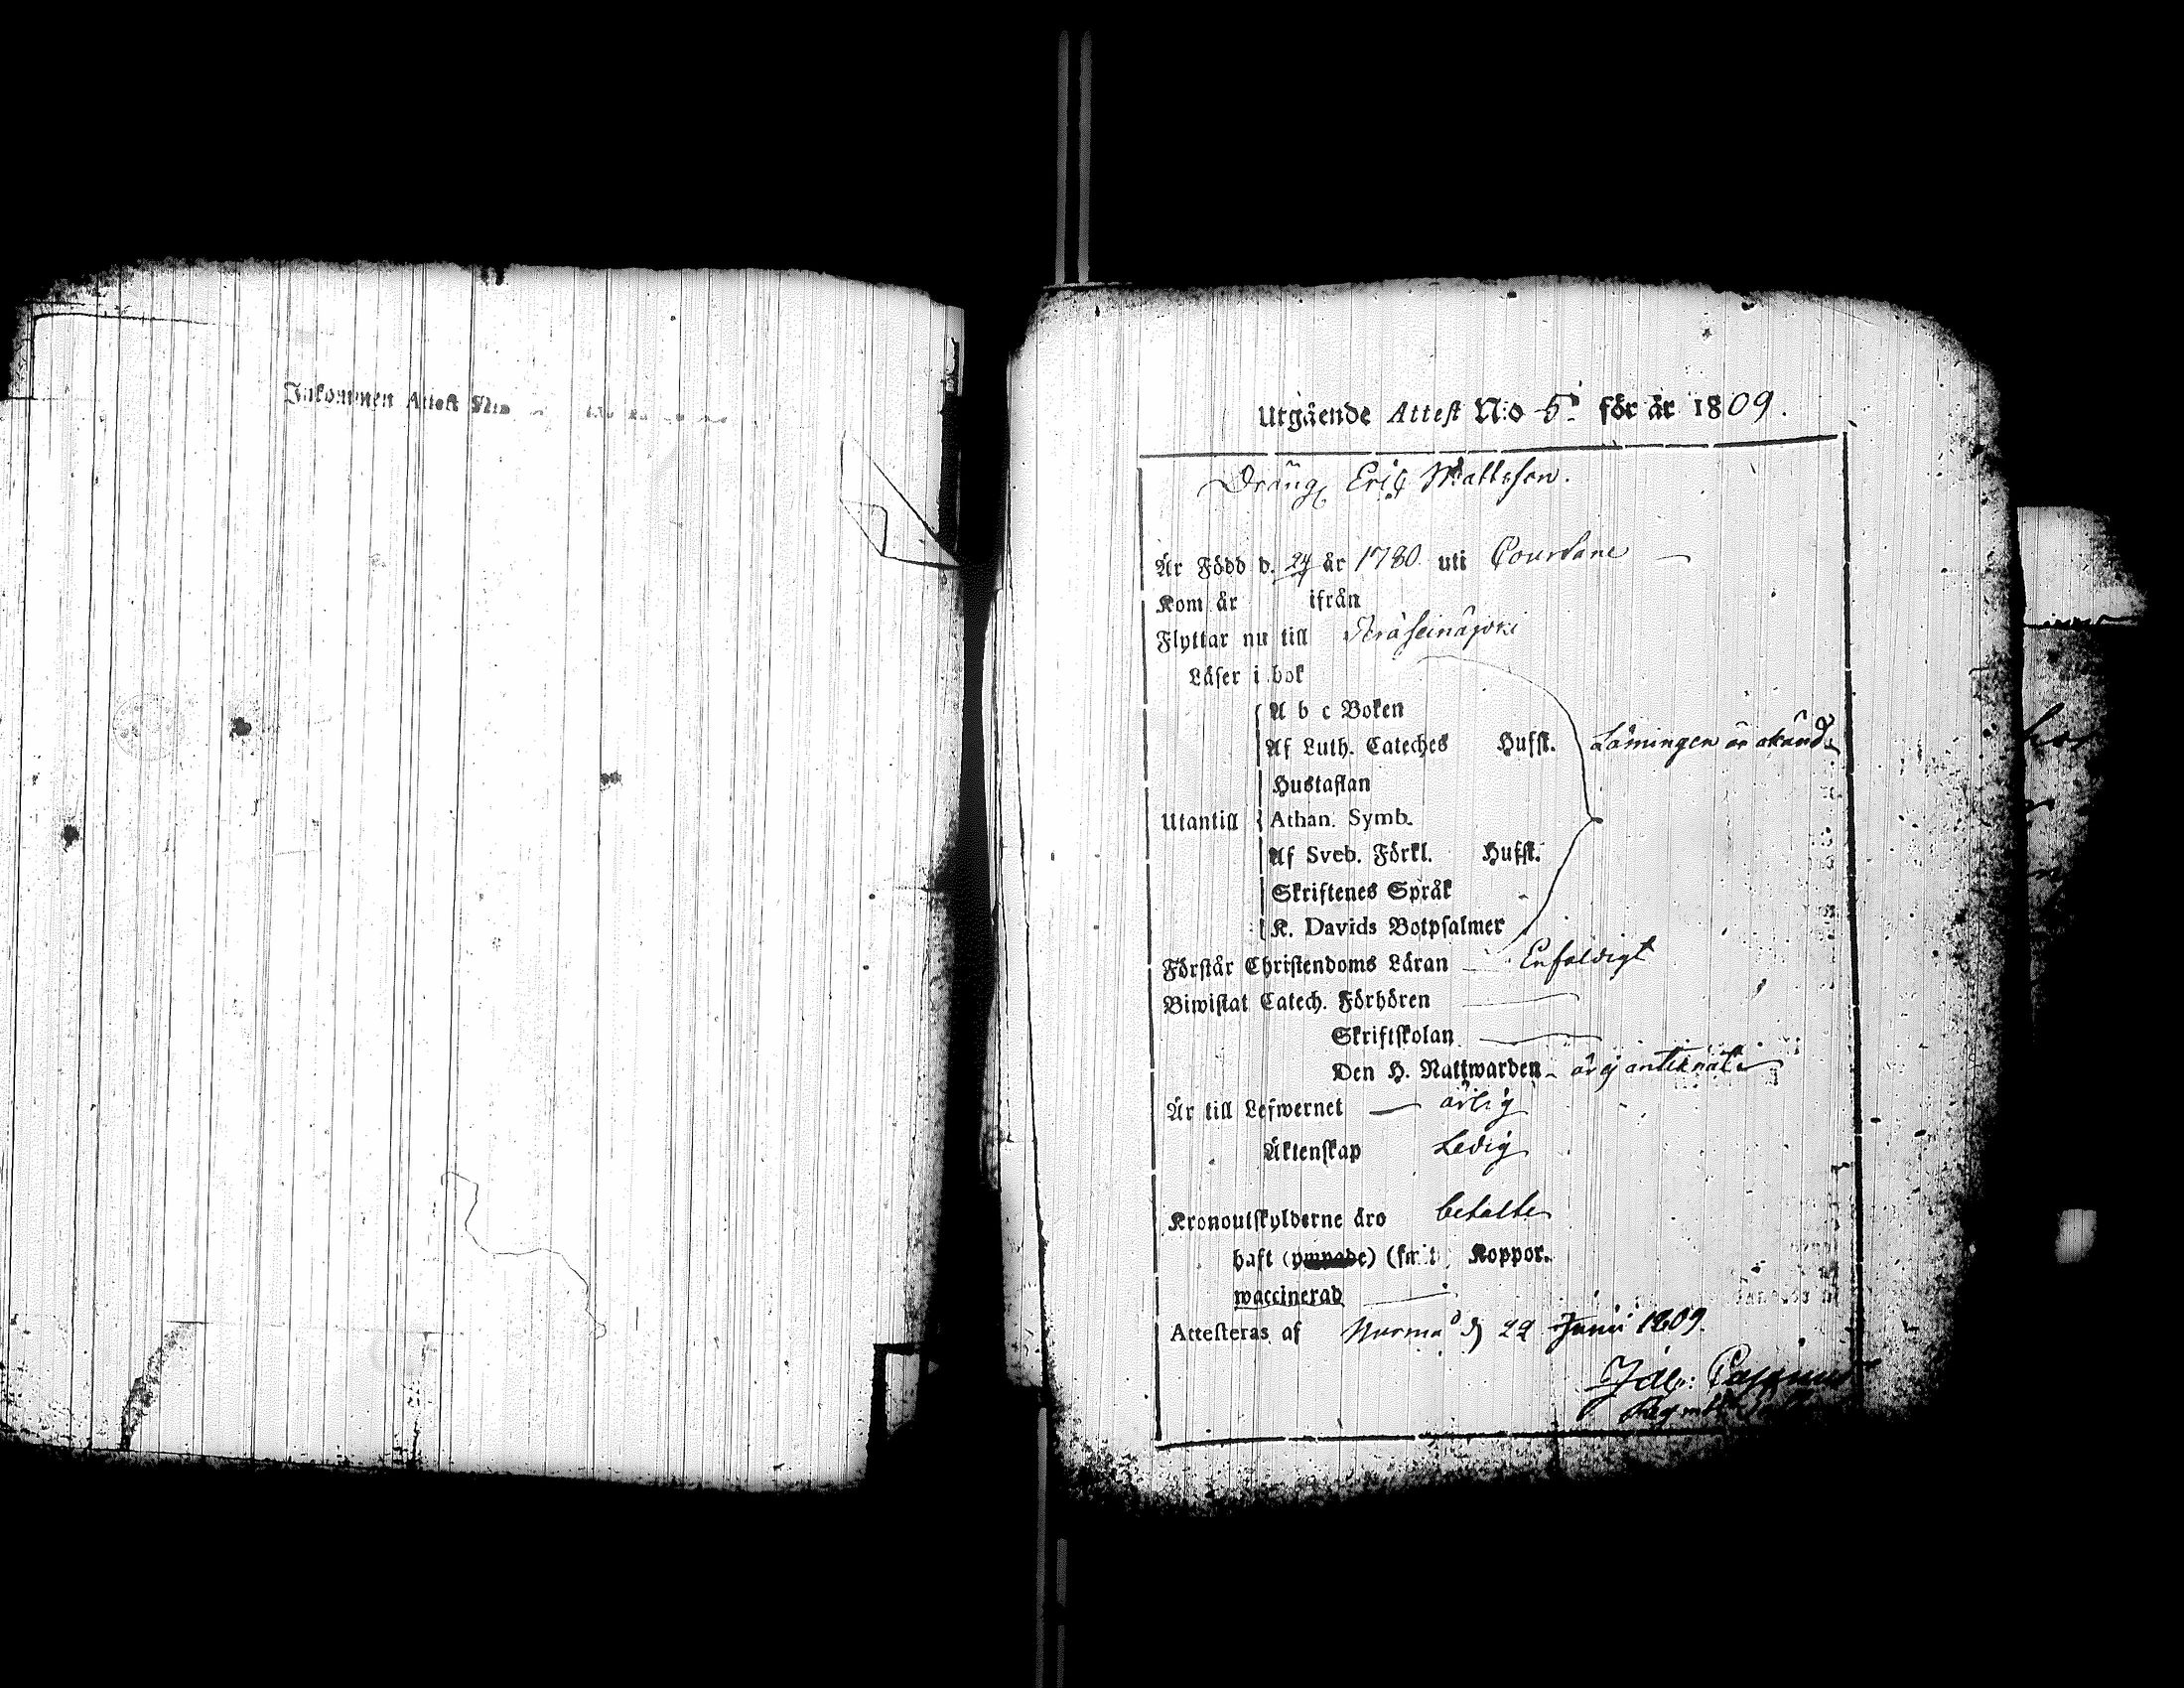 Inkommen Attest N:o
Utgående Attest N:o 5. för år 1809.
Dräng Eric Mattsson.
Är Född d. 24 år 1780. uti Courtane
Kom år ifrån
Flyttar nu till Peräseinäjoki
Läser i bok
A b c Boken
Af Luth. Cateches Hufst. Läsningen är okänd
Hustaflan
Utantill Athan. Symb.
Af Sveb. Förkl. Hufst.
Skriftenes Språk
K. Davids Botpsalmer
Förstår Christendoms Läran Enfaldigt
Biwistat Catech. Förhören
Skriftskolan
Den H. Nattwarden är ej anteknat
Är till Lefwernet ärlig
Äktenskap Ledig
Kronoutskylderne äro betalte
haft Koppor.
waccinerad
Attesteras af Nurmo d 22 Junii 1809.